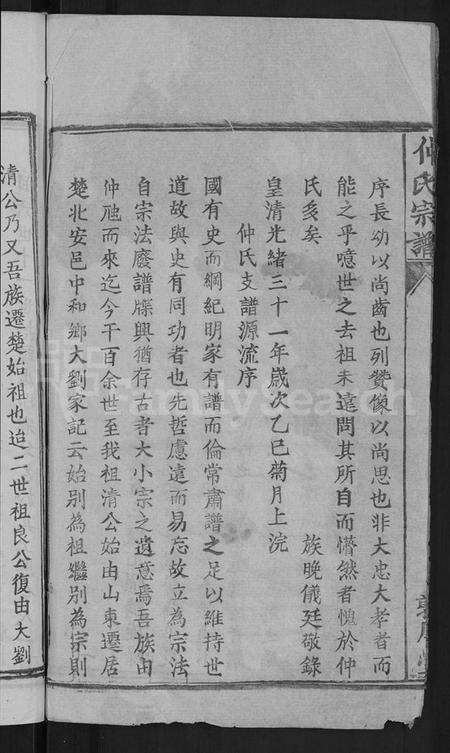 仲氏宗譜
序長幼以尚齒也列贊像以尚思也非大忠大孝者而
能之乎噫世之去祖未遠問其所自而懵然者愧於仲
氏多矣
皇清光緒三十一年歲次乙巳菊月上浣 族晚儀廷敬錄
仲氏支譜源流序
國有史而綱紀明家有譜而倫常肅譜之足以維持世
道故與史有同功者也先哲慮遠而易忘故立為宗法
自宗法廢譜牒興猶存古者大小宗之遺意焉吾族由
仲虺而來迄今千百余世至我祖清公始由山東遷居
楚北安邑中和鄉大劉家記云始別為祖繼別為宗則
清公乃又吾族遷楚始祖也迨二世祖良公復由大劉